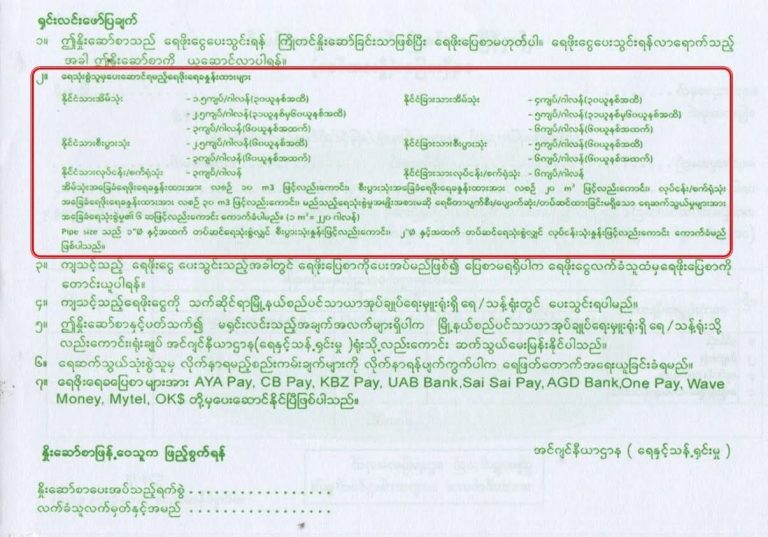 ရှင်းလင်းဖော်ပြချက်
၁။ ဤနှိုးဆော်စာသည် ရေဖိုးငွေပေးသွင်းရန် ကြိုတင်နှိုးဆော်ခြင်းသာဖြစ်ပြီး ရေဖိုးပြေစာမဟုတ်ပါ။ ရေဖိုးငွေပေးသွင်းရန်လာရောက်သည့်
အခါ ဤနှိုးဆော်စာကို ယူဆောင်လာပါရန်။
၂။ ရေသုံးစွဲသူမှပေးဆောင်ရမည့်ရေဖိုးရေခနှုန်းထားများ
နိုင်ငံသားအိမ်သုံး - ၁.၅ကျပ်/ဂါလန်(၃၀ယူနစ်အထိ) နိုင်ငံခြားသားအိမ်သုံး - ၄ကျပ်/ဂါလန်(၃၀ယူနစ်အထိ)
- ၂.၅ကျပ်/ဂါလန်(၃၁ယူနစ်မှ၆၀ယူနစ်အထိ) - ၅ကျပ်/ဂါလန်(၃၁ယူနစ်မှ၆၀ယူနစ်အထိ)
- ၃ကျပ်/ဂါလန်(၆၀ယူနစ်အထက်) - ၆ကျပ်/ဂါလန်(၆၀ယူနစ်အထက်)
နိုင်ငံသားစီးပွားသုံး - ၂.၅ကျပ်/ဂါလန်(၆၀ယူနစ်အထိ) နိုင်ငံခြားသားစီးပွားသုံး - ၅ကျပ်/ဂါလန်(၆၀ယူနစ်အထိ)
- ၃ကျပ်/ဂါလန်(၆၀ယူနစ်အထက်) - ၆ကျပ်/ဂါလန်(၆၀ယူနစ်အထက်)
နိုင်ငံသားလုပ်ငန်း/စက်ရုံသုံး - ၃ကျပ်/ဂါလန် နိုင်ငံခြားသားလုပ်ငန်း/စက်ရုံသုံး - ၆ကျပ်/ဂါလန်
အိမ်သုံးအခြေခံရေဖိုးရေခနှုန်းထားအား လစဉ် ၁၀ m3 ဖြင့်လည်းကောင်း၊ စီးပွားသုံးအခြေခံရေဖိုးရေခနှုန်းထားအား လစဉ် ၂၀ m³ ဖြင့်လည်းကောင်း၊ လုပ်ငန်း/စက်ရုံသုံး
အခြေခံရေဖိုးရေခနှုန်းထားအား လစဉ် ၃၀ m3 ဖြင့်လည်းကောင်း၊ မည်သည့်ရေသုံးစွဲမှုအမျိုးအစားမဆို ရေမီတာပျက်စီး/ပျောက်ဆုံး/တပ်ဆင်ထားခြင်းမရှိသော ရေဆက်သွယ်မှုများအား
အခြေခံရေသုံးစွဲမှု၏ ၆ ဆဖြင့်လည်းကောင်း ကောက်ခံပါမည်။ (၁ m³= ၂၂၀ ဂါလန်)
Pipe size သည် ၁"Ø နှင့်အထက် တပ်ဆင်ရေသုံးစွဲလျှင် စီးပွားသုံးနှုန်းဖြင့်လည်းကောင်း၊ ၂"Ø နှင့်အထက် တပ်ဆင်ရေသုံးစွဲလျှင် လုပ်ငန်းသုံးနှုန်းဖြင့်လည်းကောင်း ကောက်ခံမည်
ဖြစ်ပါသည်။
၃။ ကျသင့်သည့် ရေဖိုးငွေ ပေးသွင်းသည့်အခါတွင် ရေဖိုးပြေစာကိုပေးအပ်မည်ဖြစ်၍ ပြေစာမရရှိပါက ရေဖိုးငွေလက်ခံသူထံမှရေဖိုးပြေစာကို
တောင်းယူပါရန်။
၄။ ကျသင့်သည့်ရေဖိုးငွေကို သက်ဆိုင်ရာမြို့နယ်စည်ပင်သာယာအုပ်ချုပ်ရေးမှူးရုံးရှိ ရေ/သန့်ရုံးတွင် ပေးသွင်းရပါမည်။
၅။ ဤနှိုးဆော်စာနှင့်ပတ်သက်၍ မရှင်းလင်းသည့်အချက်အလက်များရှိပါက မြို့နယ်စည်ပင်သာယာအုပ်ချုပ်ရေးမှူးရုံးရှိ ရေ/သန့်ရုံးသို့
လည်းကောင်း၊ရုံးချုပ် အင်ဂျင်နီယာဌာန(ရေနှင့်သန့်ရှင်းမှု )ရုံးသို့လည်းကောင်း ဆက်သွယ်မေးမြန်းနိုင်ပါသည်။
၆။ ရေဆက်သွယ်သုံးစွဲသူမှ လိုက်နာရမည့်စည်းကမ်းချက်များကို လိုက်နာရန်ပျက်ကွက်ပါက ရေဖြတ်တောက်အရေးယူခြင်းခံရမည်။
၇။ ရေဖိုးရေခပြေစာများအား AYA Pay, CB Pay, KBZ Pay, UAB Bank,Sai Sai Pay, AGD Bank,One Pay, Wave
Money, Mytel, OK$ တို့မှပေးဆောင်နိုင်ပြီဖြစ်ပါသည်။
နှိုးဆော်စာဖြန့်ဝေသူက ဖြည့်စွက်ရန် အင်ဂျင်နီယာဌာန ( ရေနှင့်သန့်ရှင်းမှု )
နှိုးဆော်စာပေးအပ်သည့်ရက်စွဲ . . . . . . . . . . . . . . . . . .
လက်ခံသူလက်မှတ်နှင့်အမည် . . . . . . . . . . . . . . . . . .